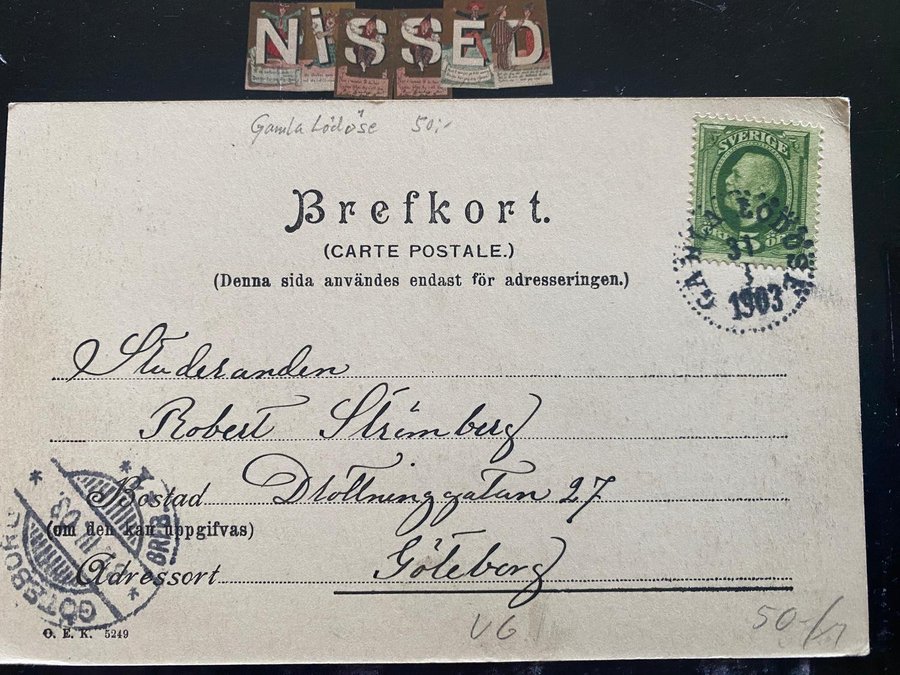 NiSSED
Gamla Lödöse 50:-
SVERIGE
GAMLA LÖDÖSE
31
3
1903
Brefkort.
(CARTE POSTALE.)
(Denna sida användes endast för adresseringen.)
Studeranden
Robert Strömberg
Bostad Drottninggatan 27
(om den kan uppgifvas)
Adressort Göteborg
GÖTEBORG
BREF
O. E. K. 5249
VG
50:-